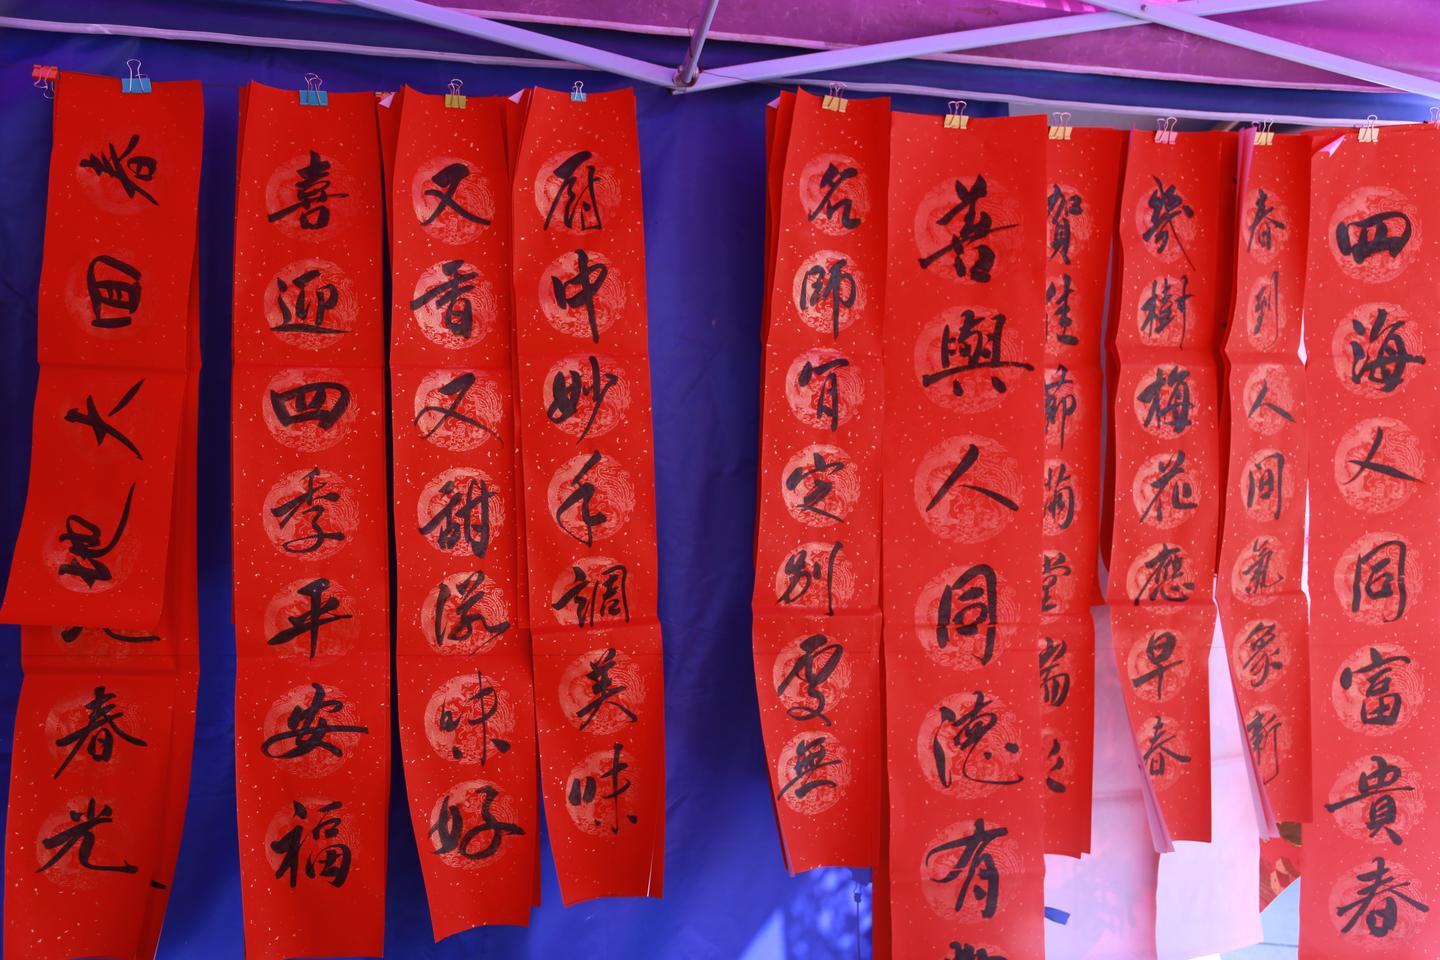 春回大地
春光
喜迎四季平安福
又香又甜滋味好
厨中妙手調美味
名師宜定別處無
善與人同德有
賀佳節滿堂
幾樹梅花應早春
春到人間氣象新
四海人同富貴春